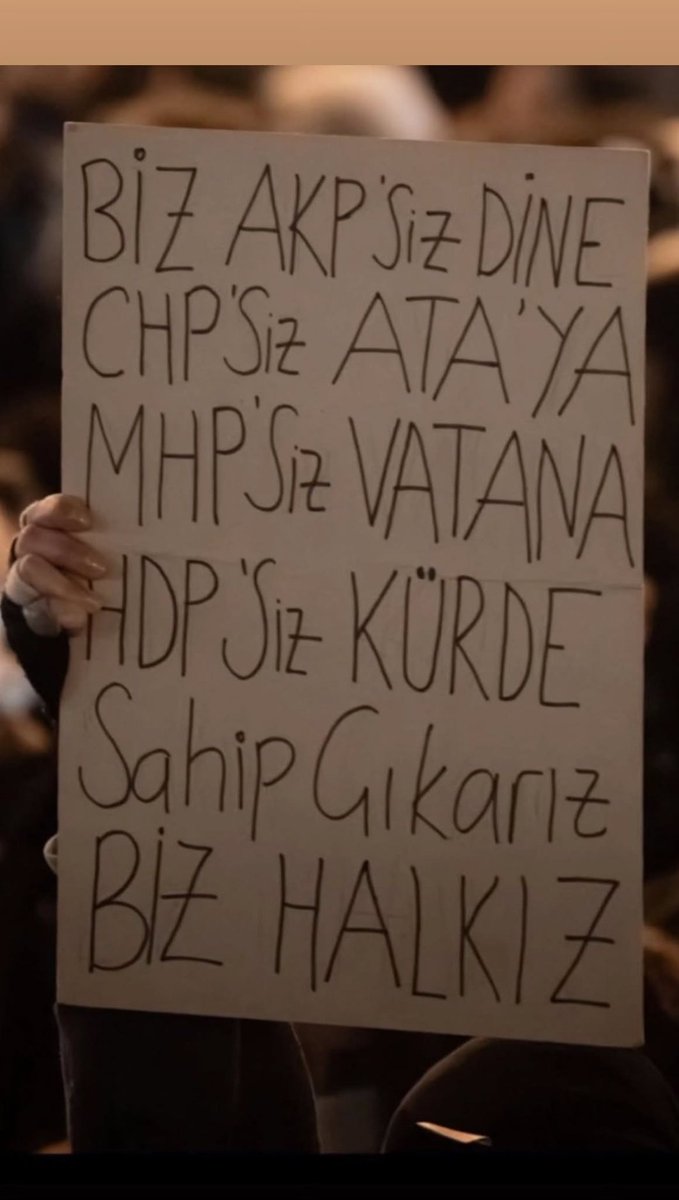 BİZ AKP'SİZ DİNE
CHP'SİZ ATA'YA
MHP'SİZ VATANA
HDP'SİZ KÜRDE
Sahip Çıkarız
BİZ HALKIZ